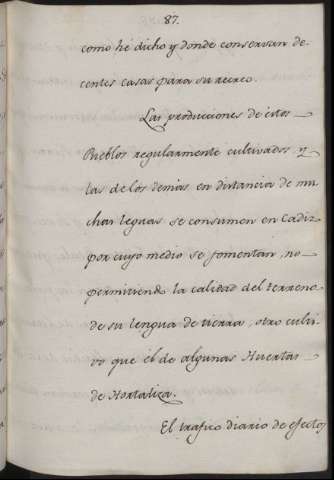 87.
como hé dicho y donde conservan de-
centes casas para su recreo.
Las producciones de estos
Pueblos regularmente cultivados y
las de los demas en distancia de mu-
chas leguas se consumen en Cadiz
por cuyo medio se fomentan, no
permitiendo la calidad del terreno
de su lengua de tierra, otro culti-
vo que el de algunas Huertas
de Hortaliza.
El trafico diario de efectos